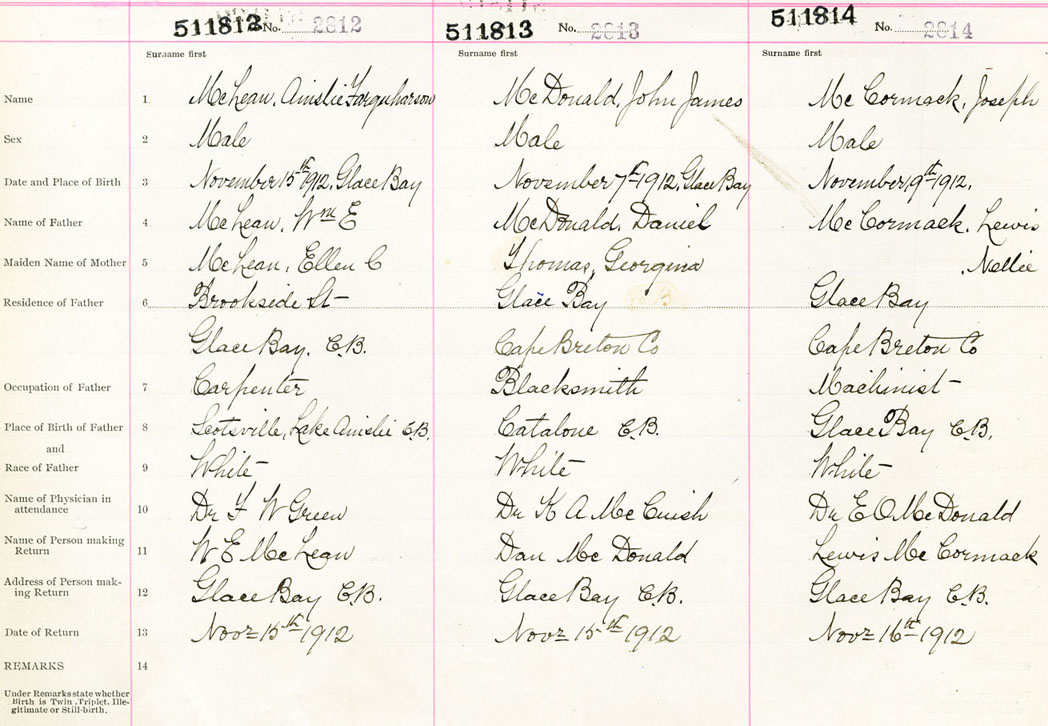 511812 No. 2812 511813 No. 2813 511814 No. 2814
Surname first Surname first Surname first
Name 1 McLean, Ainslie Farquharson McDonald, John James McCormack, Joseph
Sex 2 Male Male Male
Date and Place of Birth 3 November 15th 1912, Glace Bay November 7th 1912, Glace Bay November, 9th 1912,
Name of Father 4 McLean, Wm E McDonald, Daniel McCormack, Lewis
Maiden Name of Mother 5 McLean, Ellen C Thomas, Georgina , Nellie
Residence of Father 6 Brookside St Glace Bay Glace Bay
Glace Bay, C.B. Cape Breton Co Cape Breton Co
Occupation of Father 7 Carpenter Blacksmith Machinist
Place of Birth of Father 8 Scotsville, Lake Ainslie C.B. Catalone C.B. Glace Bay C.B.
and
Race of Father 9 White White White
Name of Physician in attendance 10 Dr F W Green Dr K A McCuish Dr E O McDonald
Name of Person making Return 11 W E McLean Dan McDonald Lewis McCormack
Address of Person mak-ing Return 12 Glace Bay C.B. Glace Bay C.B. Glace Bay C.B.
Date of Return 13 Novr 15th 1912 Novr 15th 1912 Novr 16th 1912
REMARKS 14
Under Remarks state whether
Birth is Twin, Triplet, Ille-
gitimate or Still-birth.